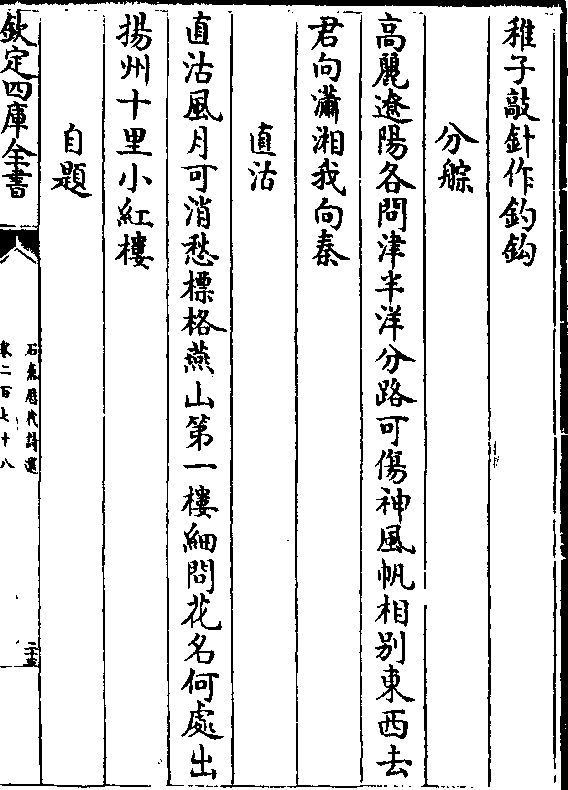 稚子敲針作釣鈎
分䑸
高麗遼陽各問津半洋分路可傷神風帆相别東西去
君向瀟湘我向秦
直沽
直沽風月可消愁標格燕山第一樓細問花名何處出
揚州十里小紅樓
自題
欽定四庫全書
石倉歷代詩選
卷二百七十八
二十五